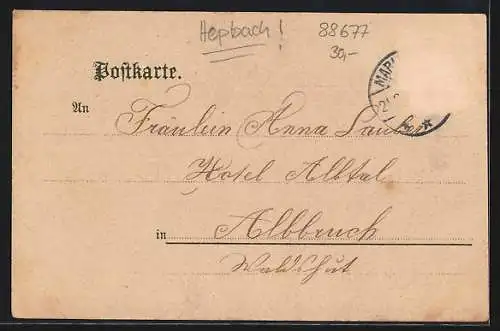 Hepbach!
88677
30,-
Postkarte.
MAR
An
Fräulein Anna Lauber
Hotel Albtal
in Albbruch
Waldshut